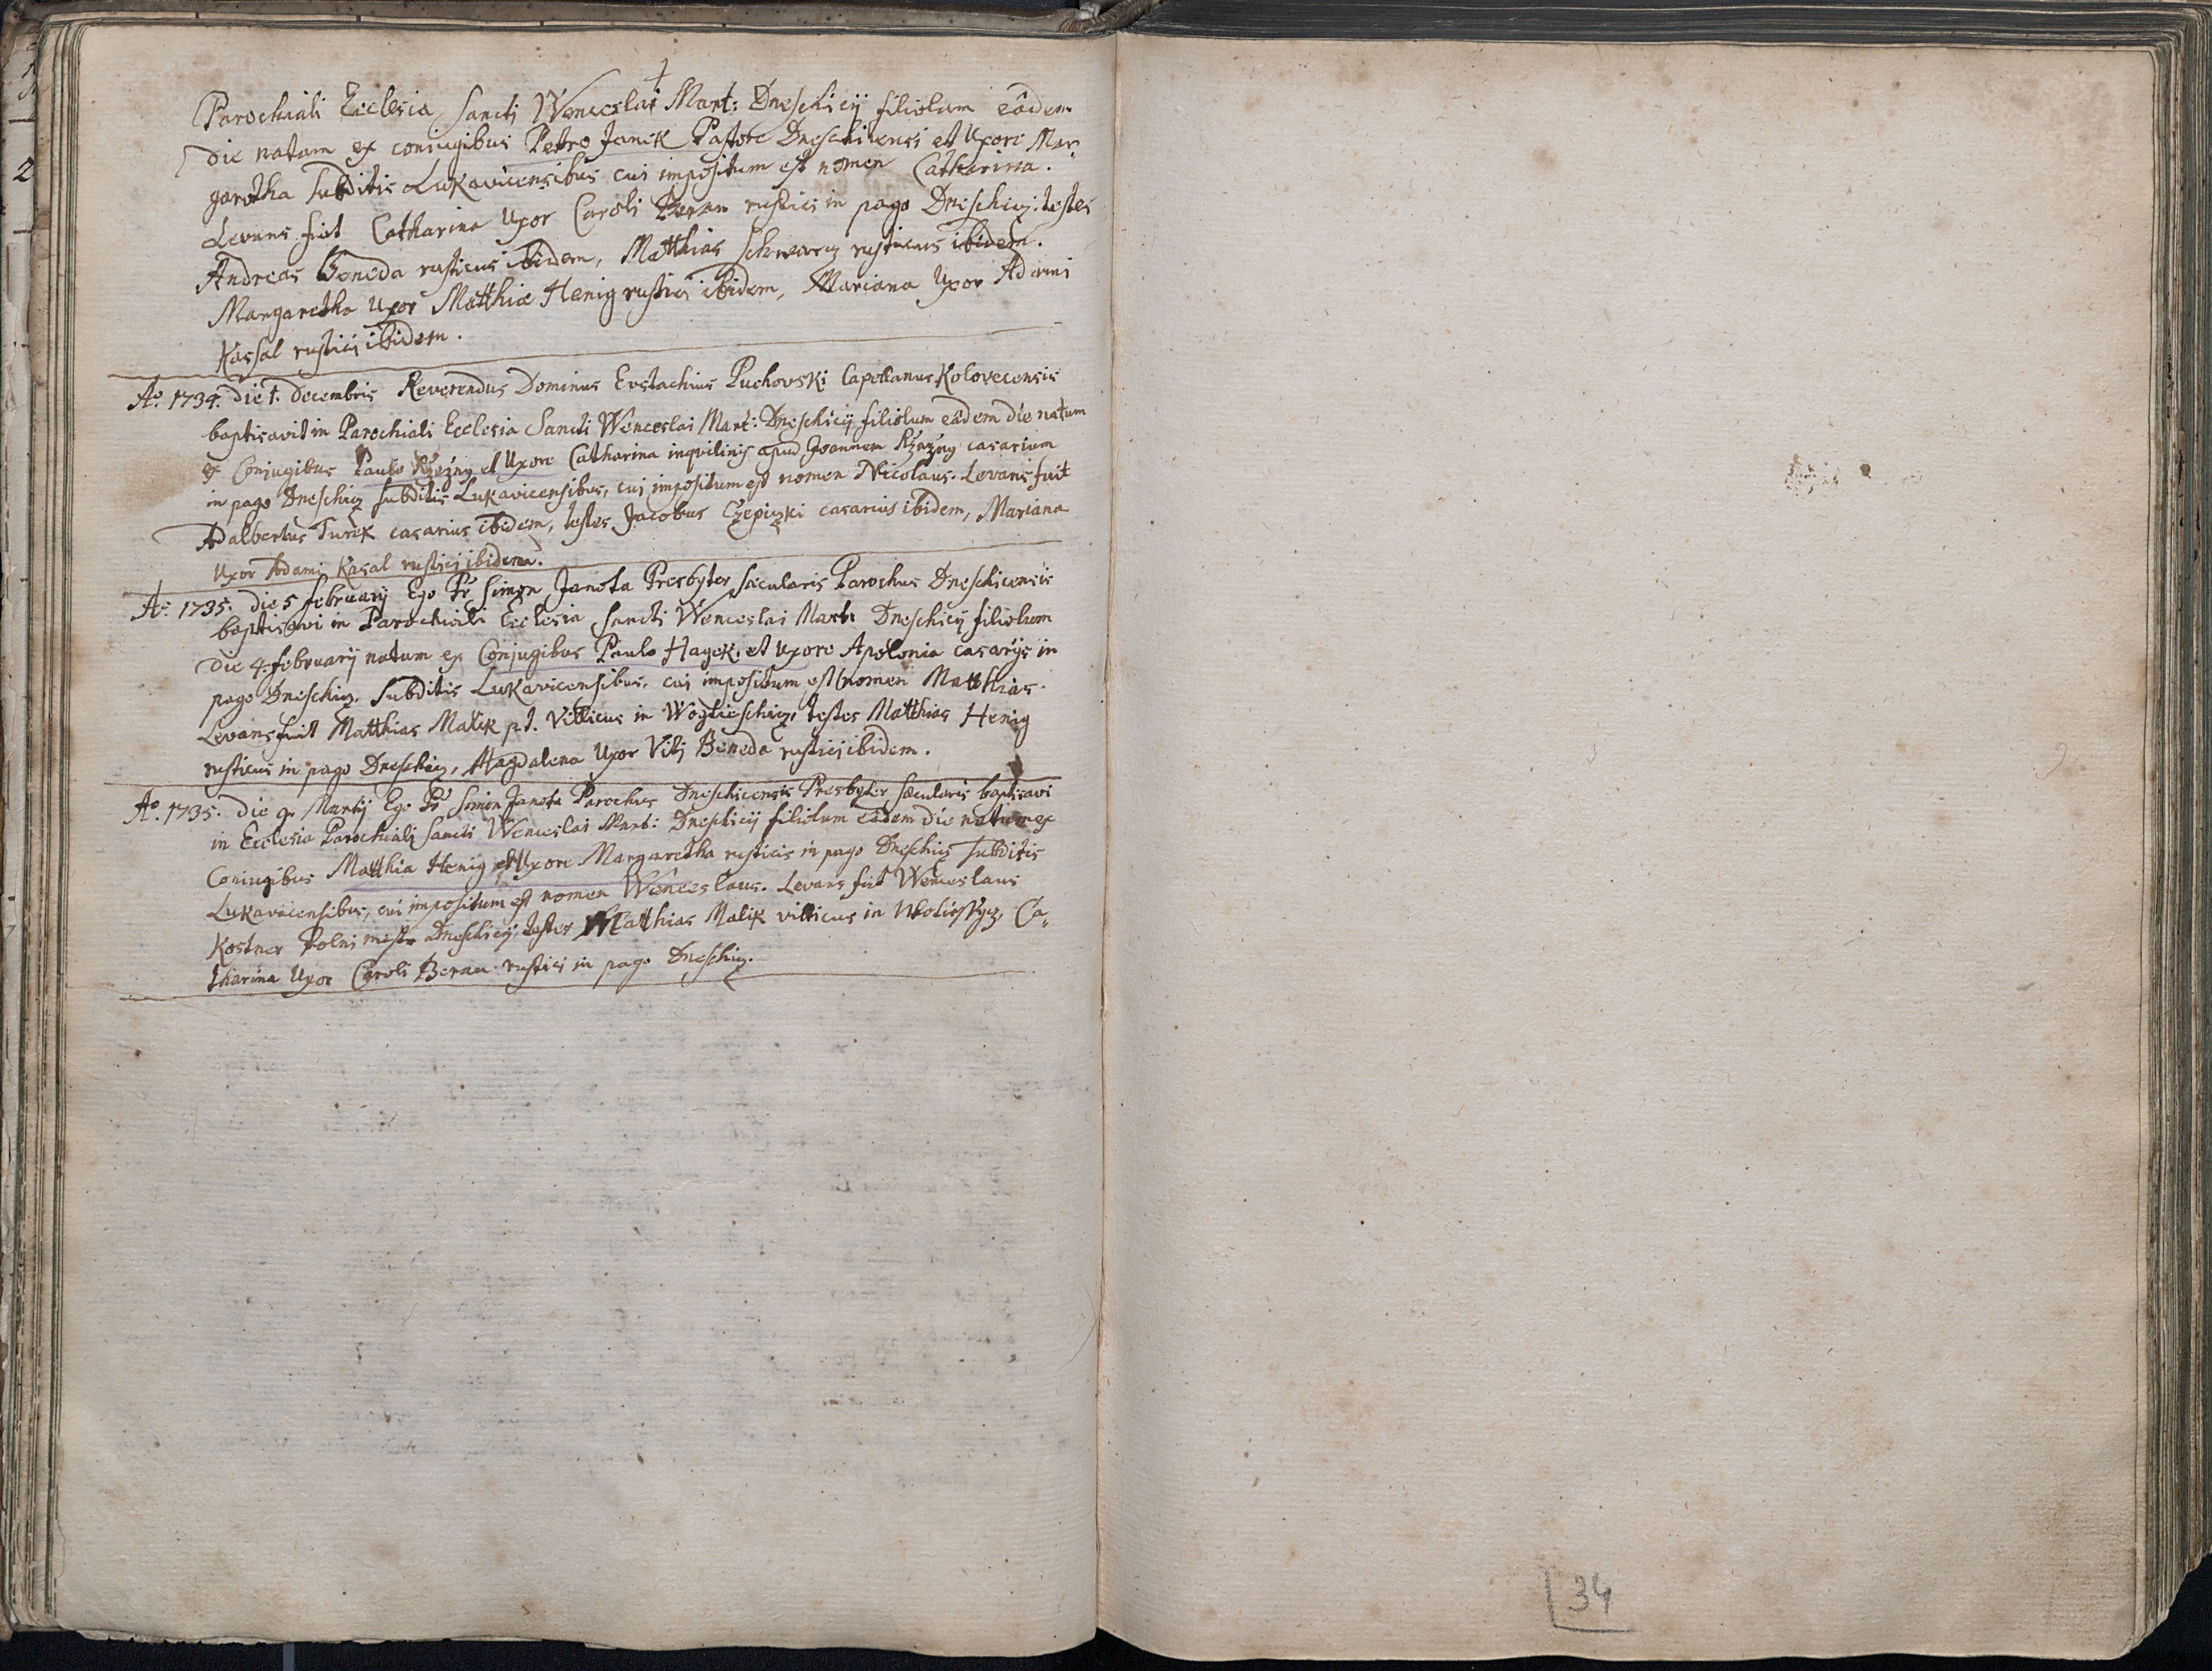 Parochiali Ecclesia Sancti Wenceslai Mart: Dneschicij filiolam eâdem
die natam ex coniugibus Petro Janik Pastore Dneschicensi et Uxore Mar,,
garetha Subditis Lukavicensibus cui impositum est nomen Catharina.
Levans fuit Catharina Uxor Caroli Beran rustici in pago Dneschicz: testes
Andreas Beneda rusticus ibidem, Matthias Schwarcz rusticus ibidem.
Margaretha Uxor Matthiæ Henig rustici ibidem, Mariana Uxor Adami
Kassal rustici ibidem.
Aº. 1734. Die 1. Decembris Reverendus Dominus Eustachius Puchovski Capellanus Kolovecensis
baptisavit in Parochiali Ecclesia Sancti Wenceslai Mart: Dneschicij filiolum eâdem die natum
ex Conjugibus Paulo Rzezny et Uxore Catharina inqvilinis apud Joannem Rzezny casarium
in pago Dneschicz subditis Lukavicensibus, cui impositum est nomen Nicolaus. Levans fuit
Adalbertus Turek casarius ibidem, testes Jacobus Czepiczki casarius ibidem, Mariana
Uxor Adami Kasal rustici ibidem.
Aº. 1735. Die 5 February Ego Pr Simon Janota Presbyter Sæcularis Parochus Dneschicensis
baptisavi in Parochiali Ecclesia Sancti Wenceslai Mart: Dneschicij filiolum
die 4. february natum ex Conjugibus Paulo Hagek, et Uxore Apolonia casarijs in
pago Dneschicz. Subditis Lukavicensibus, cui impositum est nomen Matthias.
Levans fuit Matthias Malik p.t. Villicus in testes Matthias Henig
rusticus in pago Dneschicz, Magdalena Uxor Viti Beneda rustici ibidem.
Aº. 1735. Die 9. Martij Ego Pr Simon Janota Parochus Dneschicensis Presbyter Sæcularis baptisavi
in Ecclesia Parochiali Sancti Wenceslai Mart: Dneschicij filiolum eâdem die natum ex
Coniugibus Matthia Henig et Uxore Margaretha rusticis in pago Dneschicz Subditis
Lukavicensibus, cui impositum est nomen Wenceslaus. Levans fuit Wenceslaus
Kostner Polni mistr Dneschicij, testes Matthias Malik villicus in Ca,,
tharina Uxor Caroli Beran rustici in pago Dneschicz.
34
2